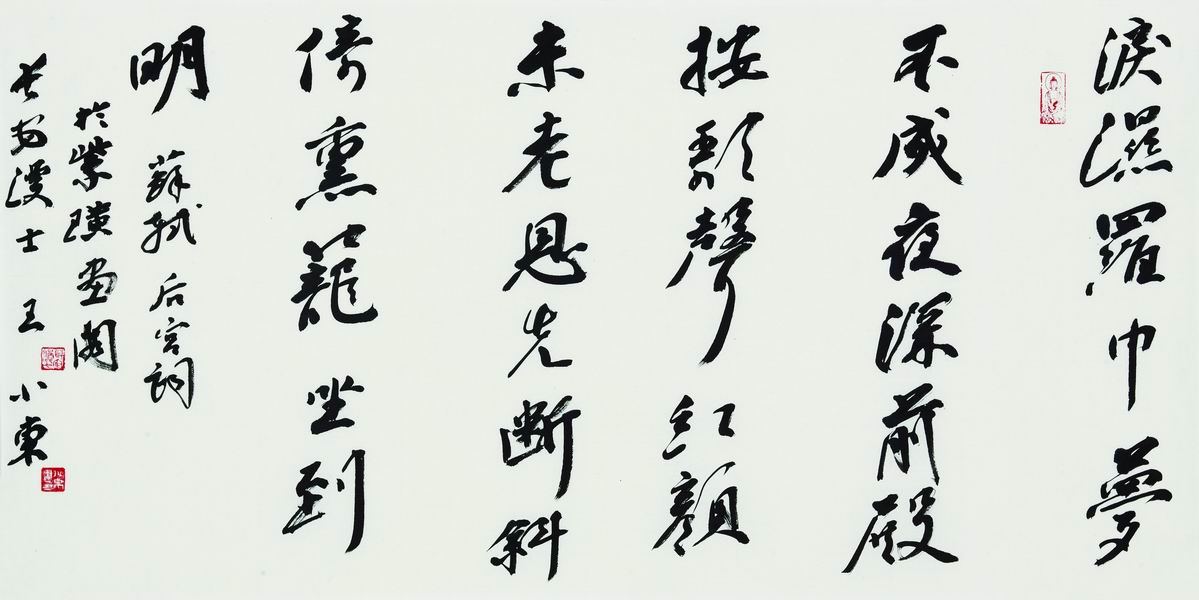 淚濕羅巾夢
不成夜深前殿
按歌聲紅顏
未老恩先斷斜
倚熏籠坐到
明 蘇軾后宮詞
於紫畫閣
漫士王小東